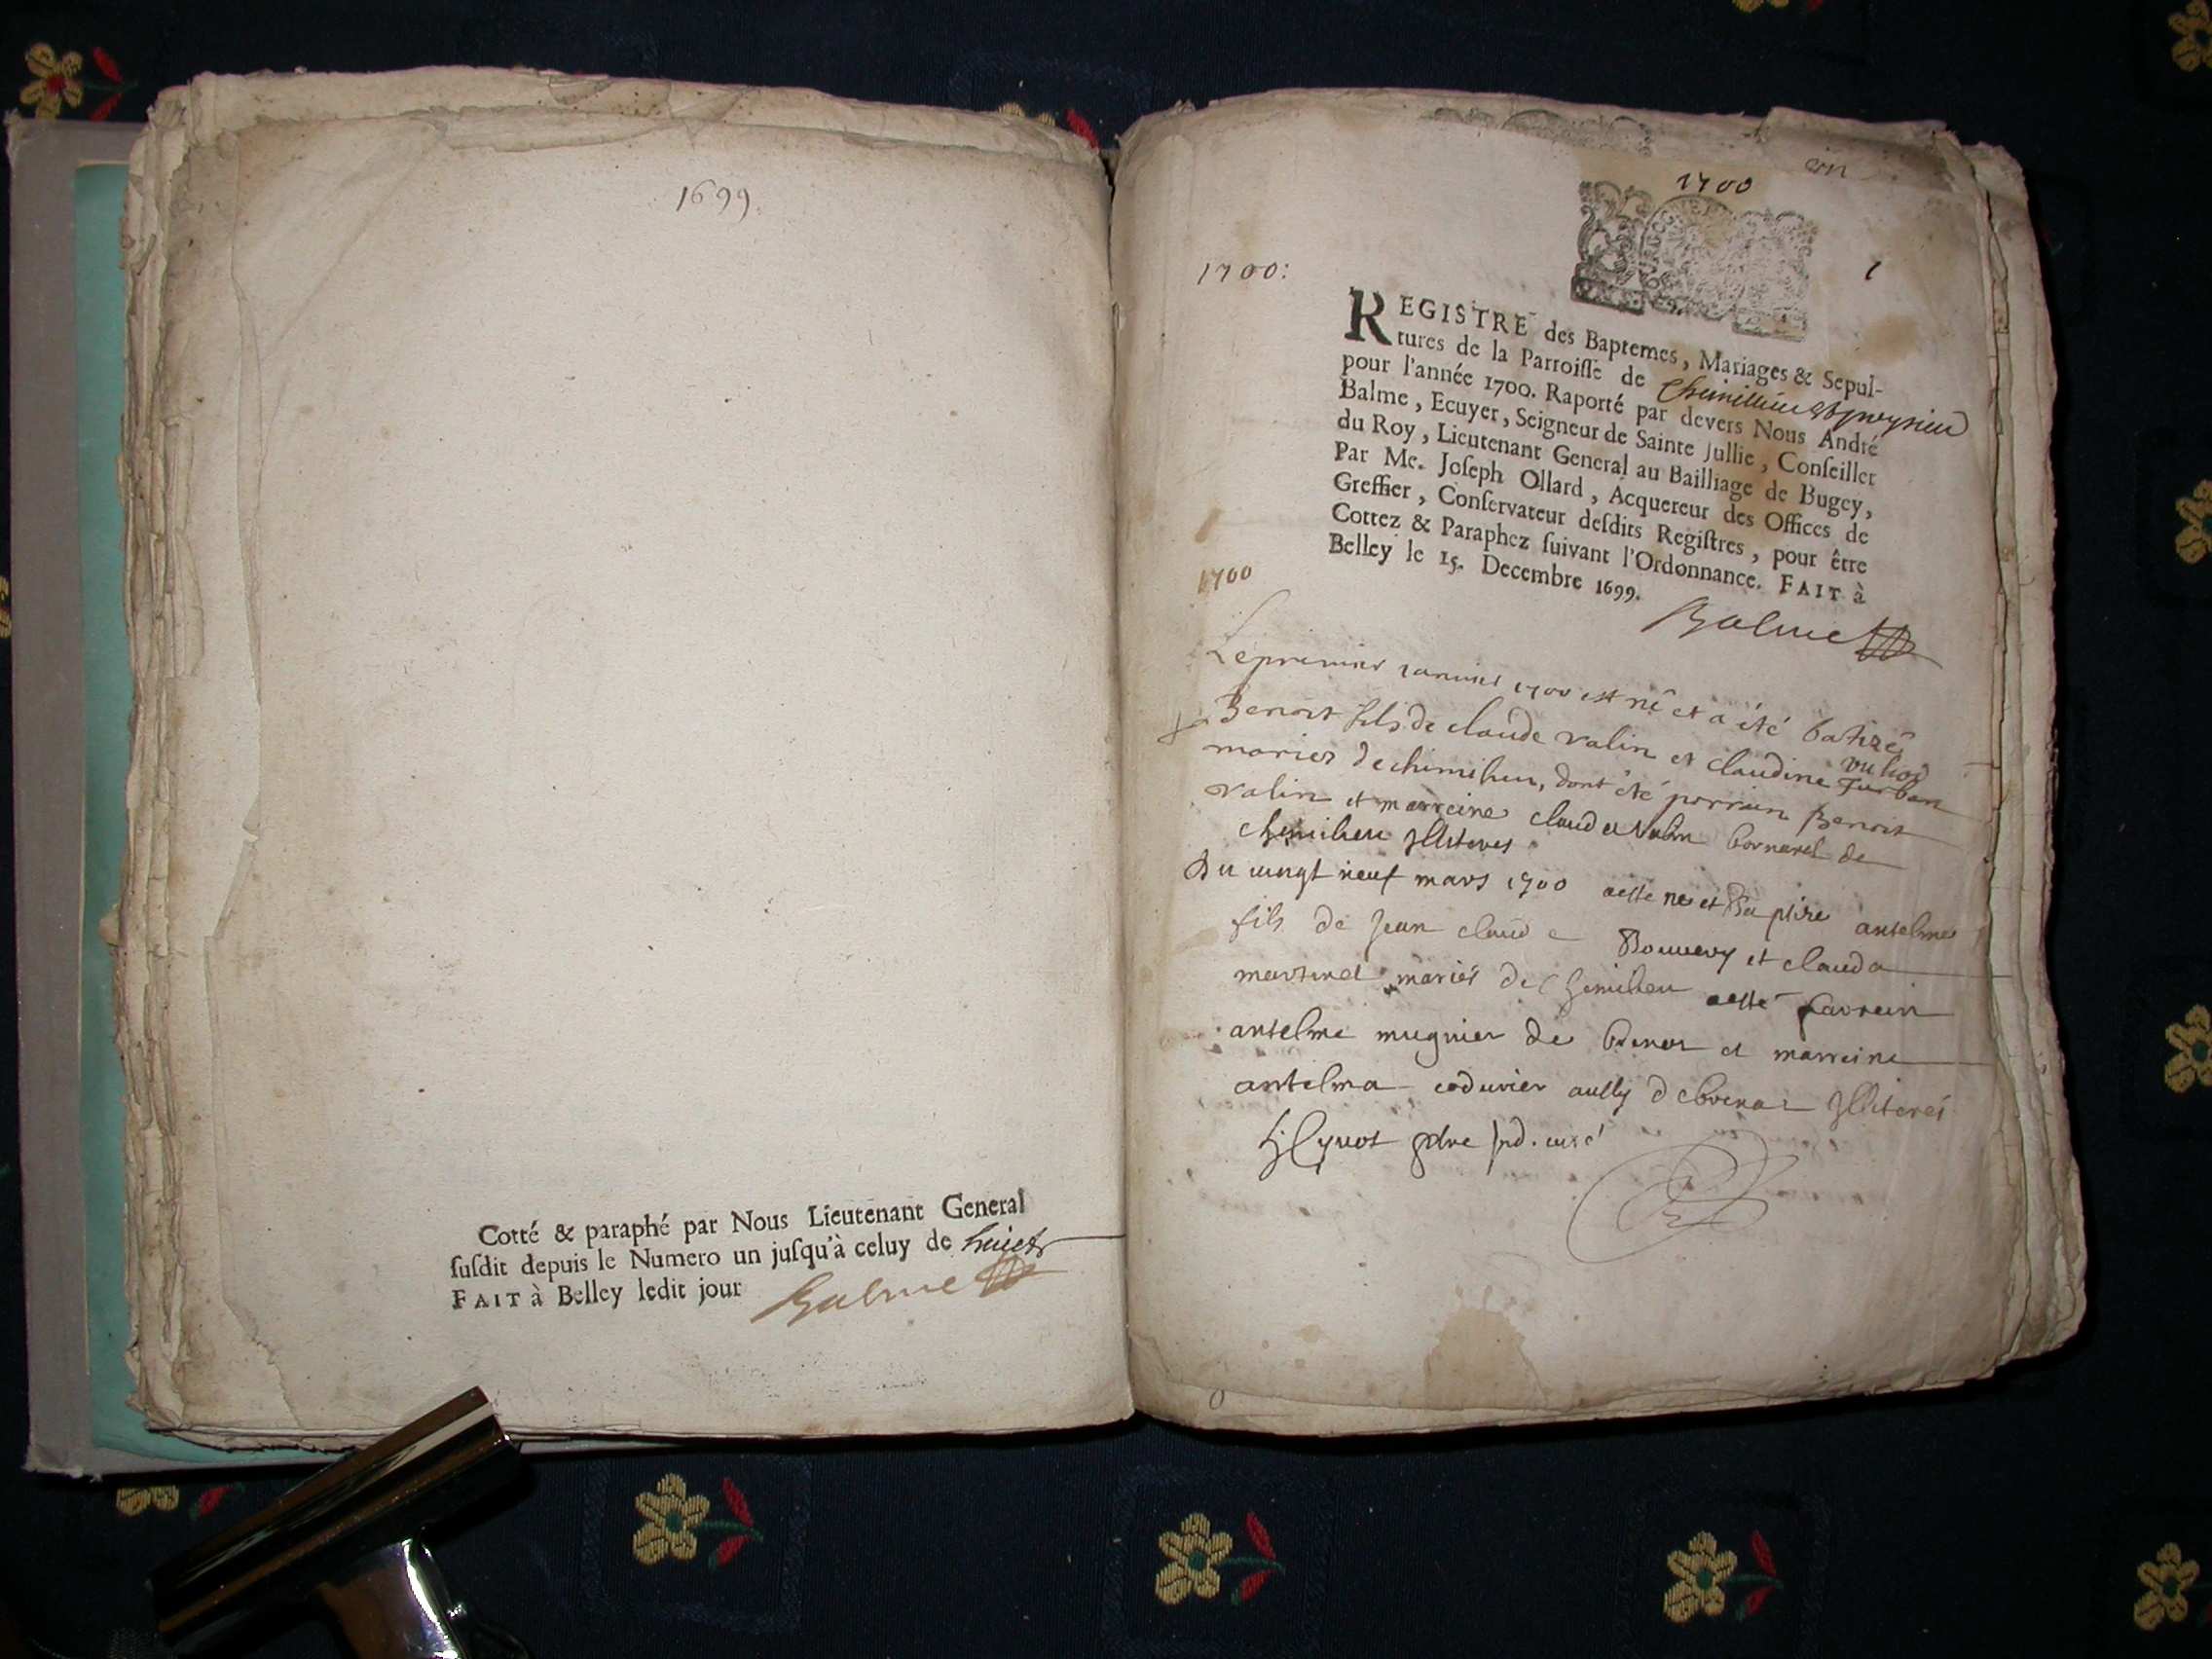 1699.
Cotté & paraphé par Nous Lieutenant General
ſuſdit depuis le Numero un juſqu'à celuy de huict
FAIT à Belley ledit jour Balme
1700
1
1700:
REGISTRE des Baptemes, Mariages & Sepul-
tures de la Parroiſſe de
pour l'année 1700. Raporté par devers Nous André
Balme, Ecuyer, Seigneur de Sainte Jullie, Conſeiller
du Roy, Lieutenant General au Bailliage de Bugey,
Par Me. Joſeph Ollard, Acquereur des Offices de
Greffier, Conſervateur deſdits Regiſtres, pour être
Cottez & Paraphez ſuivant l'Ordonnance. FAIT à
Belley le 15. Decembre 1699.
Balme
1700
Le premier janvier 1700 est né et a été batizé
Benoit fils de claude valin et claudine
mariez de chimilieu, dont été parrain Benoit
valin et marreine de
chemilieu Illiteres
Du vingt neuf mars 1700 aesté né et Baptize antelme
fils de Jean claude Bouvery et clauda
martinet mariés de Chemilieu aesté parrein
antelme mugnier de brenas et marreine
antelma coduvier aussy de brenas Illiterés
pbre curé